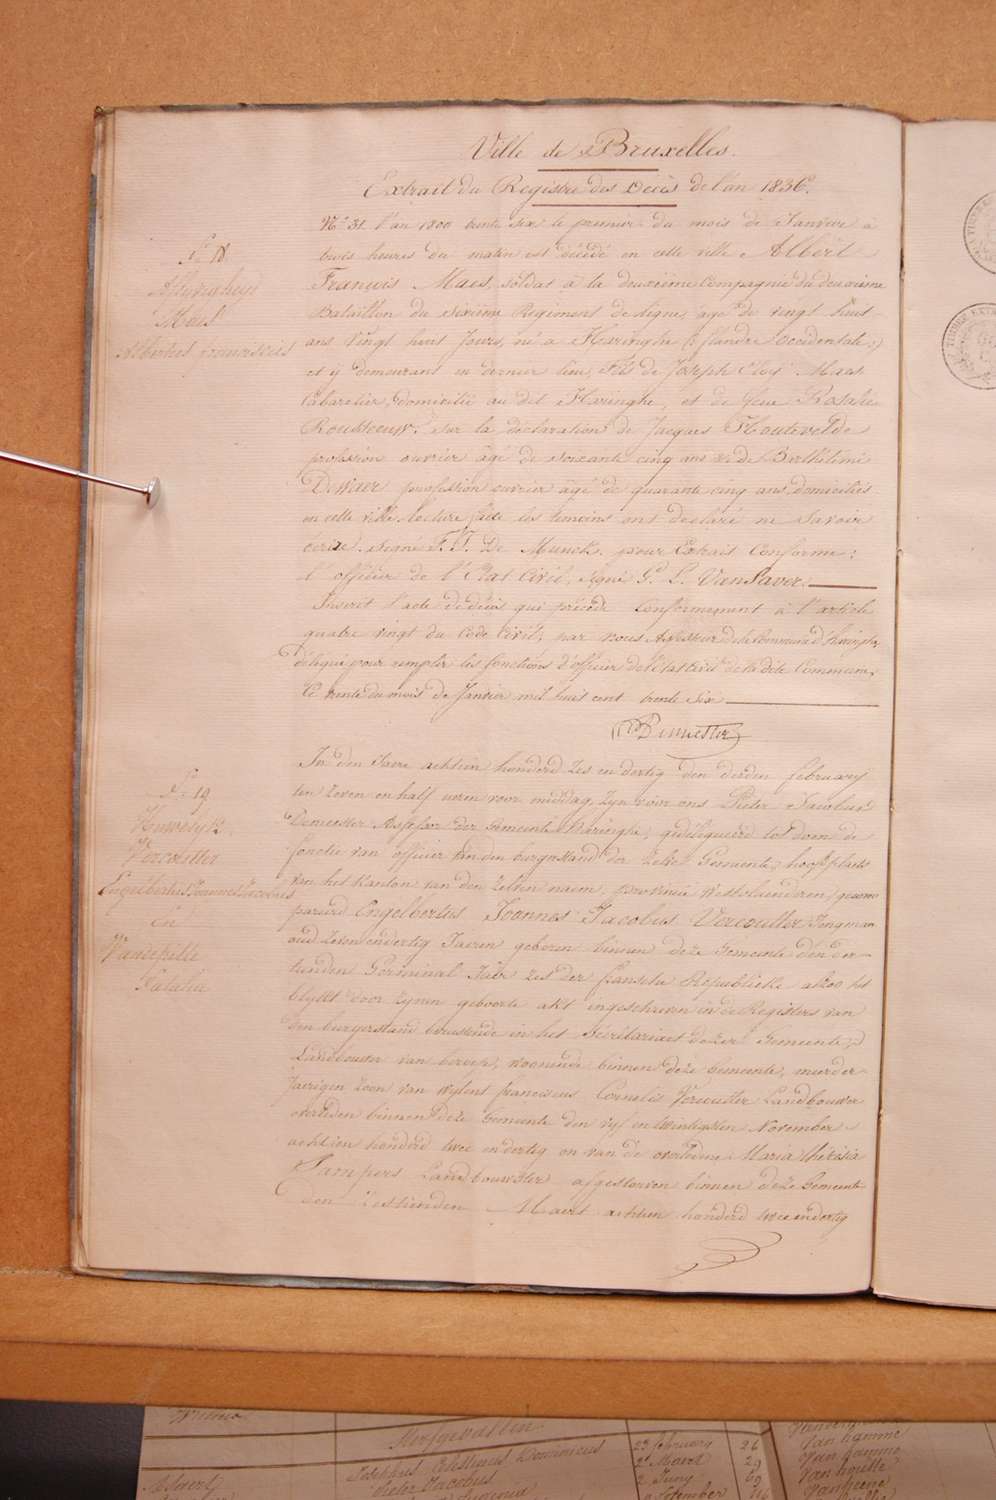 Ville de Bruxelles.
Extrait du Registre des Décès de l'an 1836.
N° 18
Aflyvigheyd
Maes
Albertus franciscus
N° 31. l'an 1800 trente six le premier du mois de Janvier à
trois heures du matin est décédé en cette ville Albert
Francois Maes, soldat à la deuxième Compagnie du deuxième
Bataillon du sixième Régiment de ligne, âgé de vingt huit
ans vingt huit Jours, né à Haringhe (flandre Occidentale)
et y demeurant en dernier lieu, Fils de Joseph Eloy Maes
Cabaretier, domicilié au dit Haringhe, et de feue Rosalie
Rousseeuw. sur la déclaration de Jacques Houtevelde
profession ouvrier âgé de soixante cinq ans et de Berthélémi
Dewaer profession ouvrier âgé de quarante cinq ans, domiciliés
en cette ville lecture faite les temoins ont declaré ne savoir
écrire. signé F. J. De Munck, pour Extrait Conforme:
l'officier de l'Etat Civil, signé G. L. Van Laver.
Inscrit l'acte de décès qui précède Conformement à l'article
quatre vingt du Code Civil, par nous Assesseur de la Commune d'Haringhe,
délégué pour remplir les fonctions d'officier de l'état Civil de la dite Commune,
Ce trente du mois de Janvier mil huit cent trente six
Demeester
N° 19
Huwelyk
Vercoutter
Engelbertus Joannes Jacobus
En
Natalia
In den Jaere achtien honderd zes en dertig den derden february
ten zeven en half uren voor middag, zyn voor ons Pieter Jacobus
Demeester Assessor der Gemeente Haringhe, gedelegueerd tot doen de
fonctie van officier van den burgerstand der zelve Gemeente, hoofdplaets
van het Kanton van den zelven naem, provincie Westvlaenderen, gecom
pareerd Engelbertus Joannes Jacobus Vercoutter Jongman
oud zeven en dertig Jaeren geboren binnen deze Gemeente den der-
tienden Germinal Jaer zes der fransche Republieke alzoo het
blykt door zynen geboorte akt ingeschreven in de Registers van
den burgerstand berustende in het Secretariaet dezer Gemeente,
Landbouwer van beroep, woonende binnen deze Gemeente, meerder
Jaerigen zoon van wylent franciscus Cornelis Vercoutter Landbouwer
overleden binnen deze Gemeente den vyf en twintigsten November
achtien honderd twee en dertig en van de overledene Maria Theresia
Pampers Landbouwster afgestorven binnen deze Gemeente
den zestienden Maert achtien honderd twee en dertig
TIMBRE
TIMBRE EXTRA
february
23 february 26
2 Maert 29
2 Juny
Van hamme
Van houtte